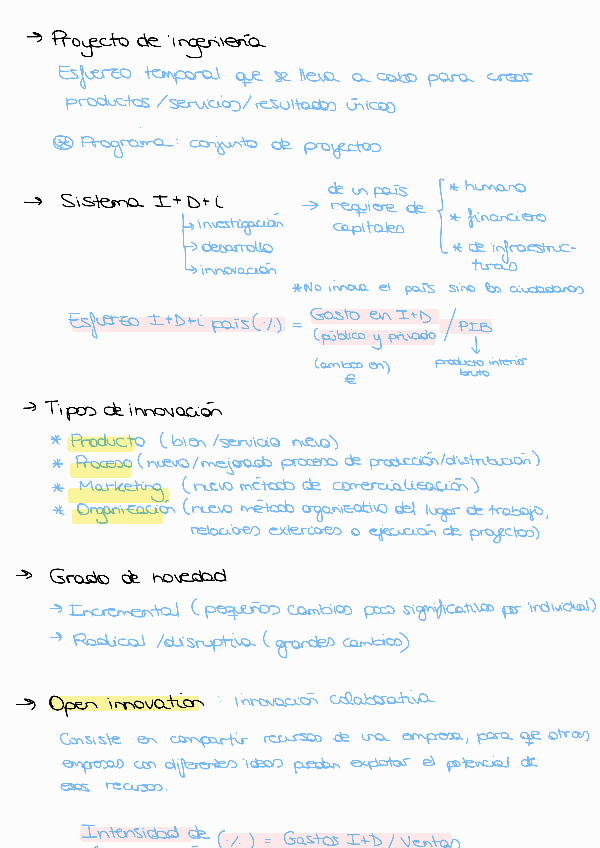 → Proyecto de ingeniería
Esfuerzo temporal que se lleva a cabo para crear
productos/servicios/resultados únicos
⊛ Programa: conjunto de proyectos
→ Sistema I+D+i
↳ investigación
↳ desarrollo
↳ innovación
→ de un país
requiere de
capitales
* humano
* financiero
* de infraestruc-
turas
*No innova el país sino los ciudadanos
Esfuerzo I+D+i país (%) = Gasto en I+D (público y privado) / PIB
(ambos en)
€
↓
producto interior
bruto
→ Tipos de innovación
* Producto (bien/servicio nuevo)
* Proceso (nuevo/mejorado proceso de producción/distribución)
* Marketing (nuevo método de comercialización)
* Organización (nuevo método organizativo del lugar de trabajo,
relaciones exteriores o ejecución de proyectos)
→ Grado de novedad
→ Incremental (pequeños cambios poco significativos por individual)
→ Radical/disruptiva (grandes cambios)
→ Open innovation: innovación colaborativa
Consiste en compartir recursos de una empresa, para qe otras
empresas con diferentes ideas puedan explotar el potencial de
esos recursos.
Intensidad de (%) = Gastos I+D / Ventas